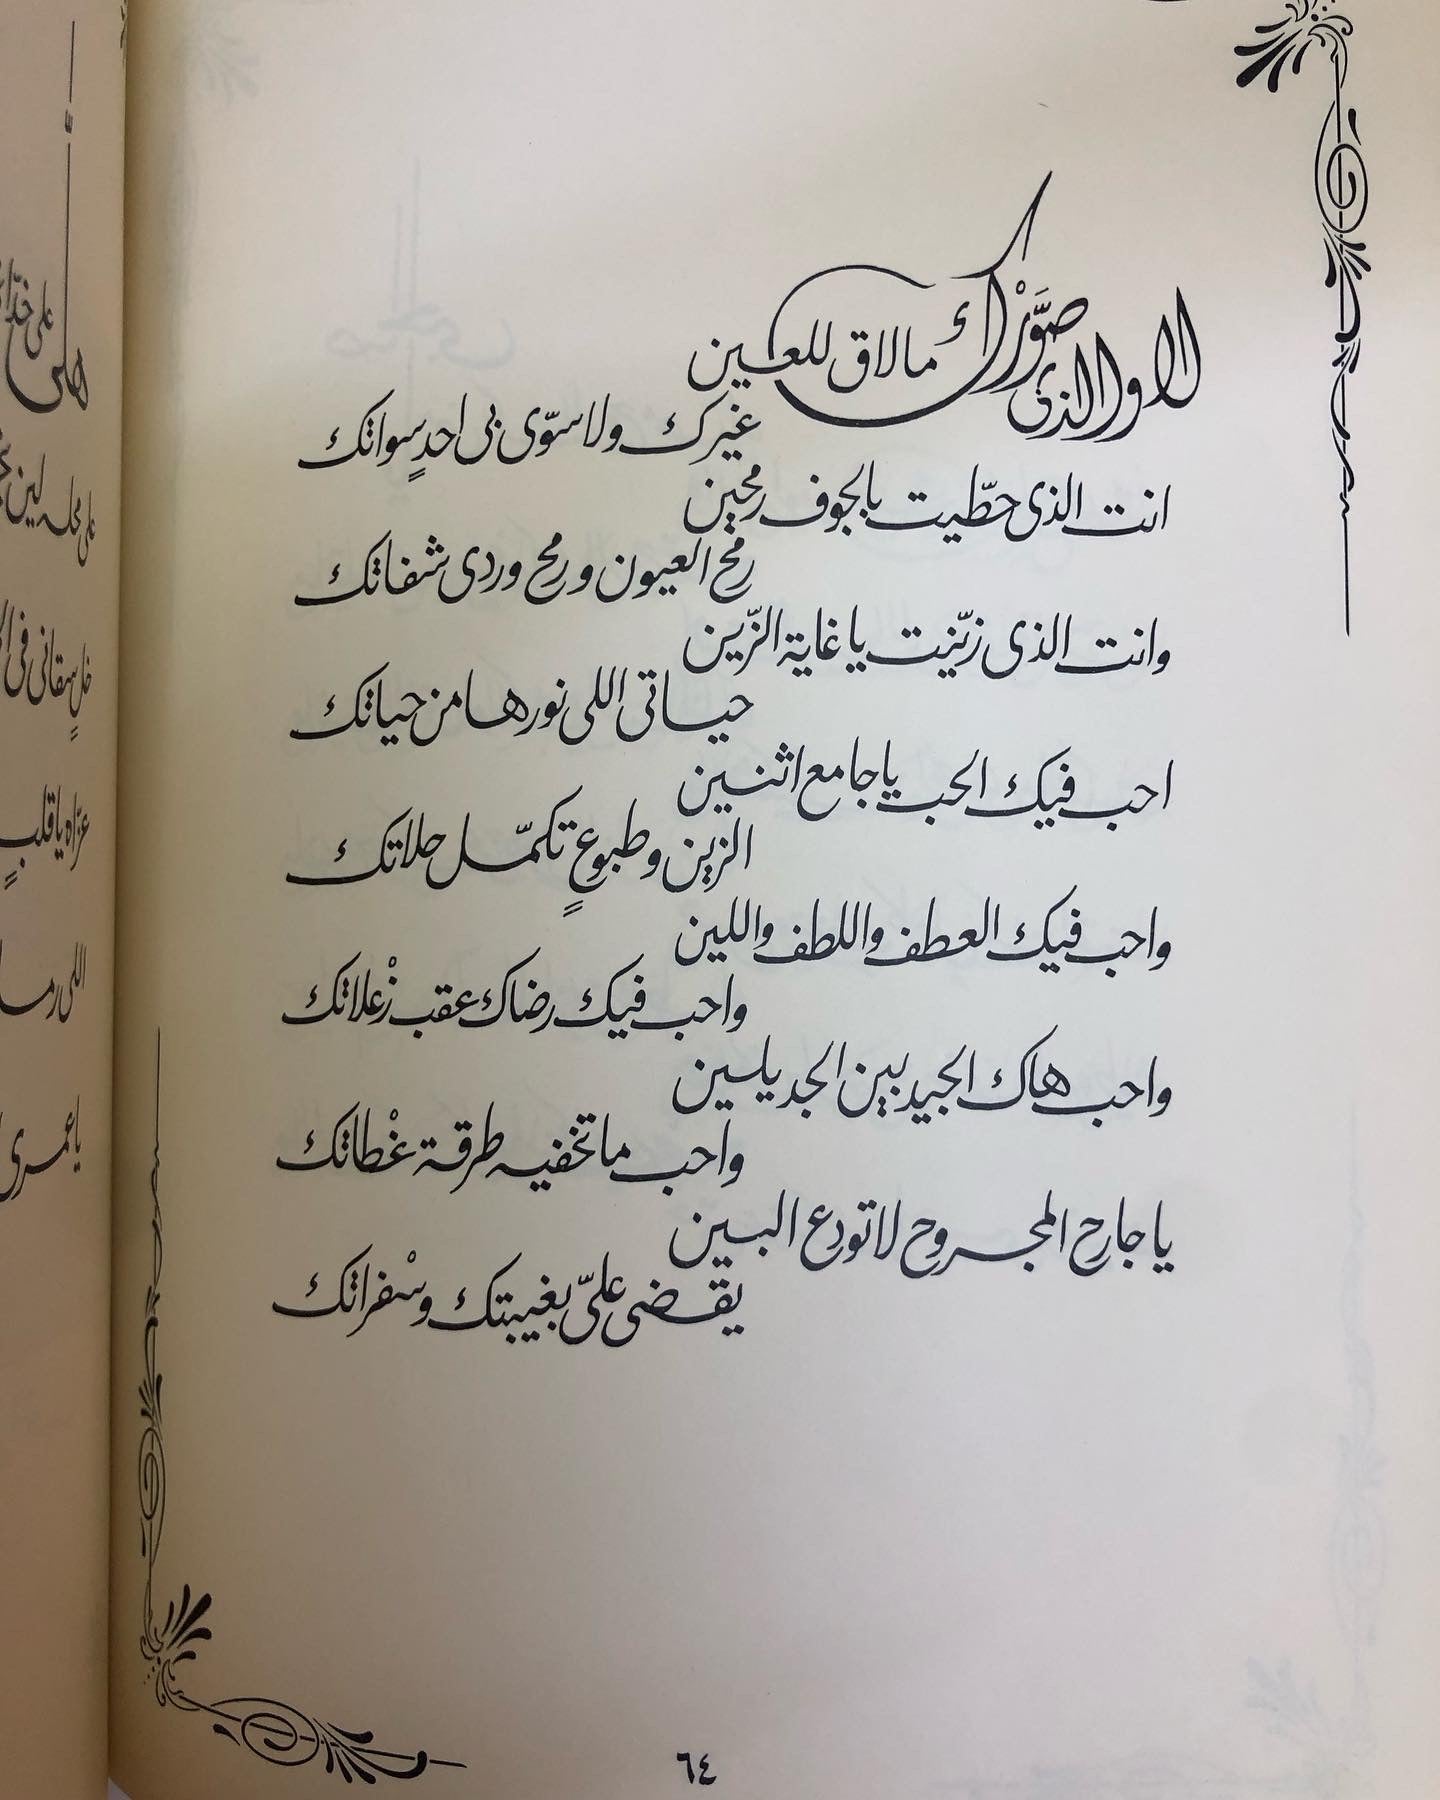 لا والذى صَوَّرْك مالاق للعين
غيرك ولا سوّى بى احدٍ سواتك
انت الذى حطّيت بالجوف رمحين
رمح العيون ورمح وردى شفاتك
وانت الذى زيّنت يا غاية الزّين
حياتى اللى نورها من حياتك
احب فيك الحب ياجامع اثنين
الزين وطبوعٍ تكمّل حلاتك
واحب فيك العطف واللطف واللين
واحب فيك رضاك عقب زْعلاتك
واحب هاك الجيد بين الجديلين
واحب ماتخفيه طرقة غْطاتك
ياجارح المجروح لاتودع البين
يقضى علىّ بغيبتك وسْفراتك
٦٤
على
على محله لين
خلٍ سقانى فى
عزّاه ياقلبٍ
اللى رما
ياعمرى